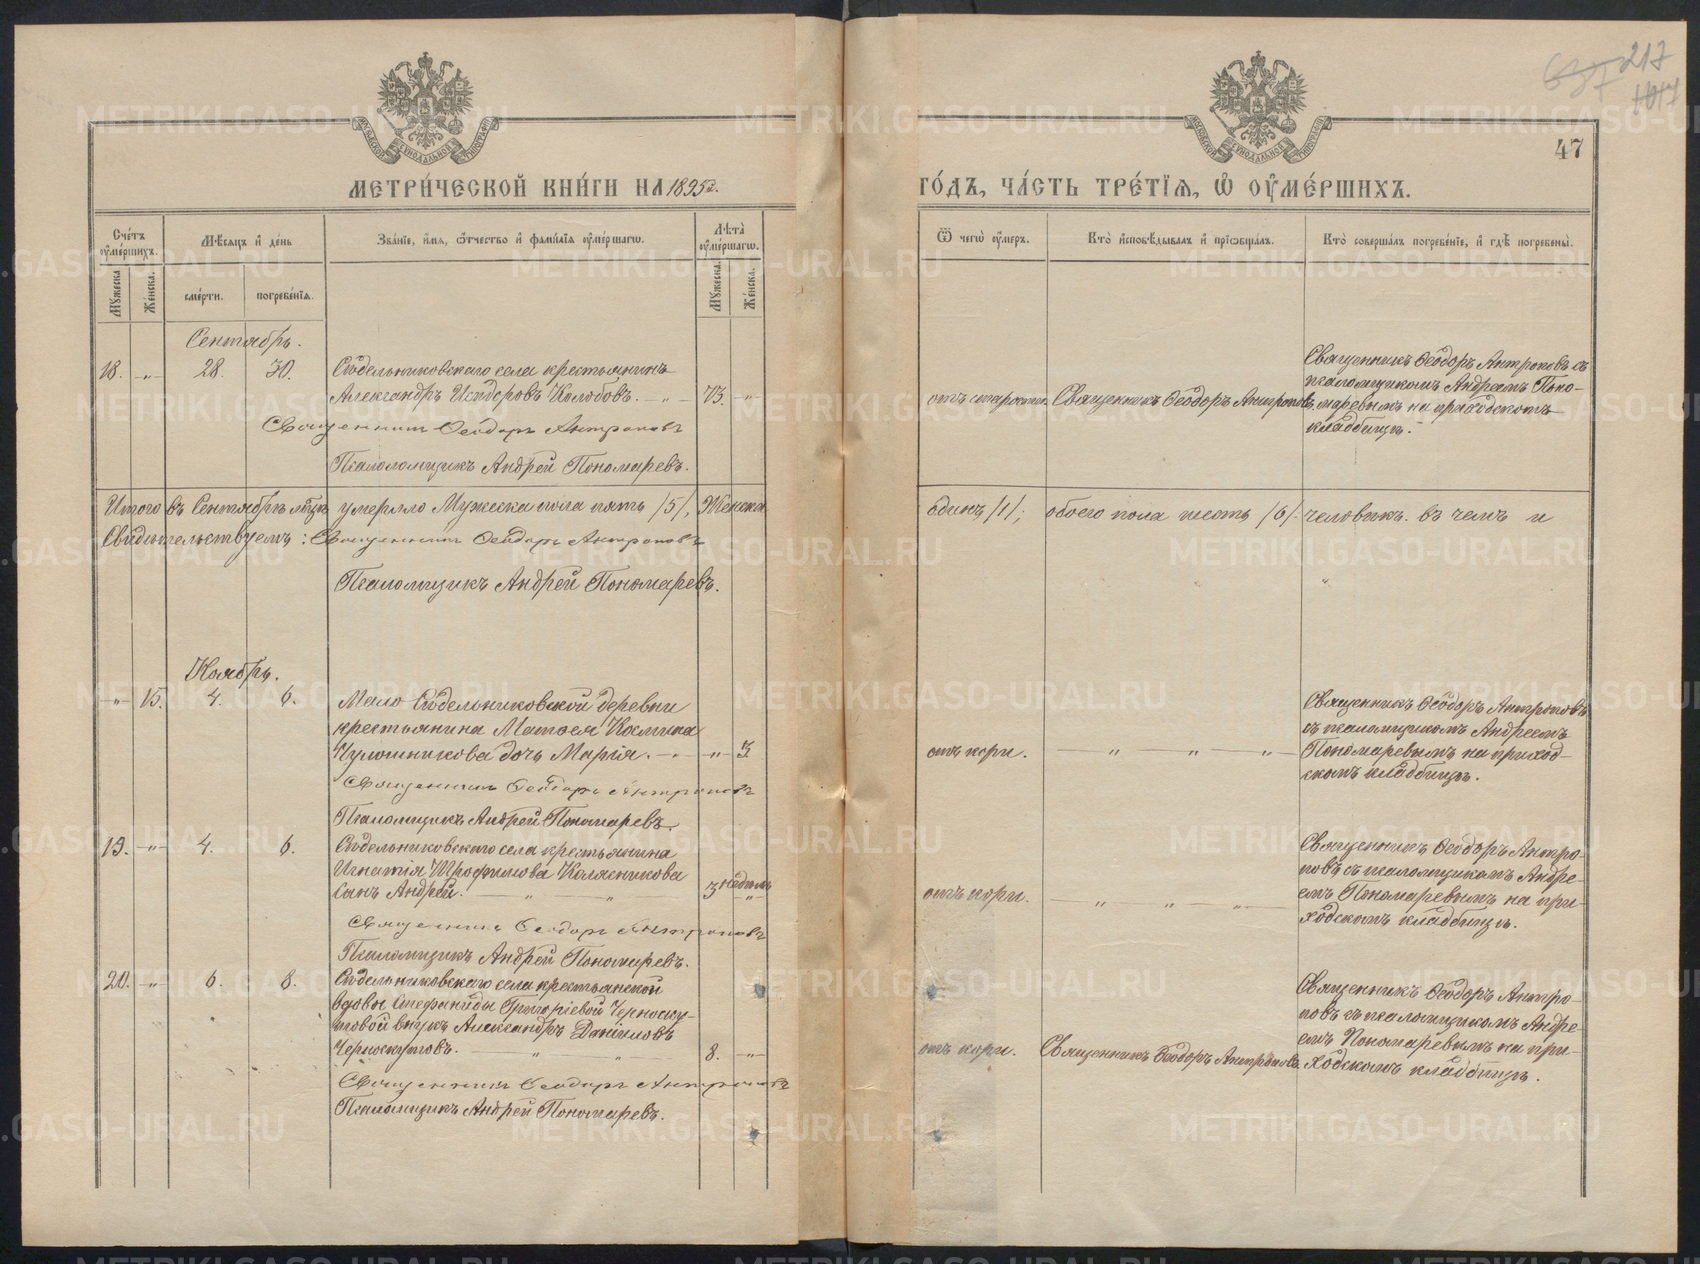 217
47
МЕТРИ́ЧЕСКОЙ КНИ́ГИ НА 1895 г.
ГО́ДЪ, ЧА́СТЬ ТРЕ́ТІѦ, Ѽ ОУ҆МЕ́РШИХЪ.
Сче́тъ оу҆ме́ршихъ.
Мѣ́сѧцъ и҆ де́нь
Зва́нїе, и҆́мѧ, ѻ҆́тчество и҆ фамı́лїѧ оу҆ме́ршагѡ.
Лѣ́та оу҆ме́ршагѡ.
Ѿ чегѡ̀ оу҆́меръ.
Кто̀ и҆сповѣ́дывалъ и҆ прїѡбща́лъ.
Кто̀ соверша́лъ погребе́нїе, и҆ гдѣ̀ погребены̀.
Мꙋжеска
Же́нска.
сме́рти.
погребе́нїѧ.
Мꙋжеска.
Же́нска.
Сентябрь.
18. -„- 28. 30.
Сѣдельниковскаго села крестьянинъ
Александръ Исидоровъ Колобовъ. -„- 73. -„-
Священникъ Ѳеодоръ Антроповъ
Псаломщикъ Андрей Пономаревъ.
отъ старости. Священникъ Ѳеодоръ Антроповъ
Священникъ Ѳеодоръ Антроповъ съ
псаломщикомъ Андреемъ Поно-
маревымъ на приходскомъ
кладбищѣ.
Итого въ Сентябрѣ мѣсяцѣ умерло Мужеска пола пять /5/, Женска
одинъ /1/; обоего пола шесть /6/ человѣкъ. въ чемъ и
Свидѣтельствуемъ: Священникъ Ѳеодоръ Антроповъ
Псаломщикъ Андрей Пономаревъ.
Ноябрь.
-„- 15. 4. 6.
Мало Сѣдельниковской деревни
крестьянина Матѳея Космина
дочь Марія. -„- „- 3.
Священникъ Ѳеодоръ Антроповъ
Псаломщикъ Андрей Пономаревъ.
отъ кори. „ „ „
Священникъ Ѳеодоръ Антроповъ
съ псаломщикомъ Андреемъ
Пономаревымъ на приход-
скомъ кладбищѣ.
19. -„- 4. 6.
Сѣдельниковскаго села крестьянина
Игнатія Трофимова Колясникова
сынъ Андрей. „ „ 3 недѣль -„-
Священникъ Ѳеодоръ Антроповъ
Псаломщикъ Андрей Пономаревъ.
отъ кори. „ „ „
Священникъ Ѳеодоръ Антро-
повъ съ псаломщикомъ Андре-
емъ Пономаревымъ на при-
ходскомъ кладбищѣ.
20. -„- 6. 8.
Сѣдельниковскаго села крестьянской
вдовы Стефаниды Григоріевой Черноску-
товой внукъ Александръ Даніиловъ
Черноскутовъ. „ „ 8. -„-
Священникъ Ѳеодоръ Антроповъ
Псаломщикъ Андрей Пономаревъ.
отъ кори. Священникъ Ѳеодоръ Антроповъ.
Священникъ Ѳеодоръ Антро-
повъ съ псаломщикомъ Андре-
емъ Пономаревымъ на при-
ходскомъ кладбищѣ.
METRIKI.GASO-URAL.RU